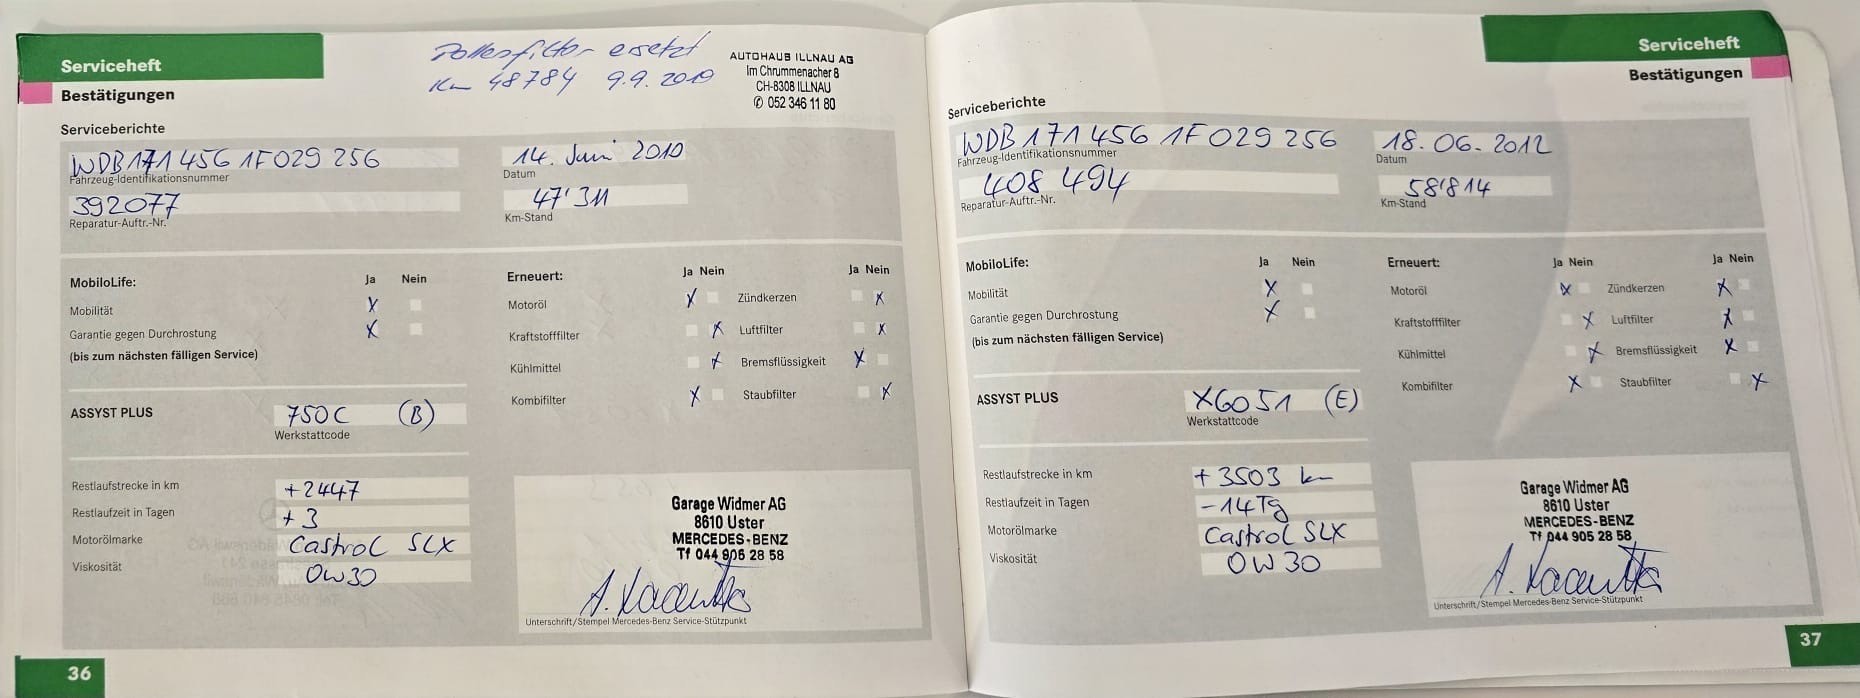 Serviceheft
Bestätigungen
Pollenfilter ersetzt
Km 48784 9.9.2010
AUTOHAUS ILLNAU AG
Im Chrummenacher 8
CH-8308 ILLNAU
✆ 052 346 11 80
Serviceberichte
WDB 171 456 1F 029 256
Fahrzeug-Identifikationsnummer
14. Juni 2010
Datum
392077
Reparatur-Auftr.-Nr.
47'311
Km-Stand
MobiloLife: Ja Nein
Mobilität X
Garantie gegen Durchrostung X
(bis zum nächsten fälligen Service)
Erneuert: Ja Nein Ja Nein
Motoröl X Zündkerzen X
Kraftstofffilter X Luftfilter X
Kühlmittel X Bremsflüssigkeit X
Kombifilter X Staubfilter X
ASSYST PLUS 750C (B)
Werkstattcode
Restlaufstrecke in km +2447
Restlaufzeit in Tagen +3
Motorölmarke Castrol SLX
Viskosität 0W30
Garage Widmer AG
8610 Uster
MERCEDES-BENZ
Tf 044 905 28 58
Unterschrift/Stempel Mercedes-Benz Service-Stützpunkt
36
Serviceheft
Bestätigungen
Serviceberichte
WDB 171 456 1F 029 256
Fahrzeug-Identifikationsnummer
18.06.2012
Datum
408 494
Reparatur-Auftr.-Nr.
58'814
Km-Stand
MobiloLife: Ja Nein
Mobilität X
Garantie gegen Durchrostung X
(bis zum nächsten fälligen Service)
Erneuert: Ja Nein Ja Nein
Motoröl X Zündkerzen X
Kraftstofffilter X Luftfilter X
Kühlmittel X Bremsflüssigkeit X
Kombifilter X Staubfilter X
ASSYST PLUS X6051 (E)
Werkstattcode
Restlaufstrecke in km +3503 km
Restlaufzeit in Tagen -14Tg
Motorölmarke Castrol SLX
Viskosität 0W30
Garage Widmer AG
8610 Uster
MERCEDES-BENZ
Tf 044 905 28 58
Unterschrift/Stempel Mercedes-Benz Service-Stützpunkt
37